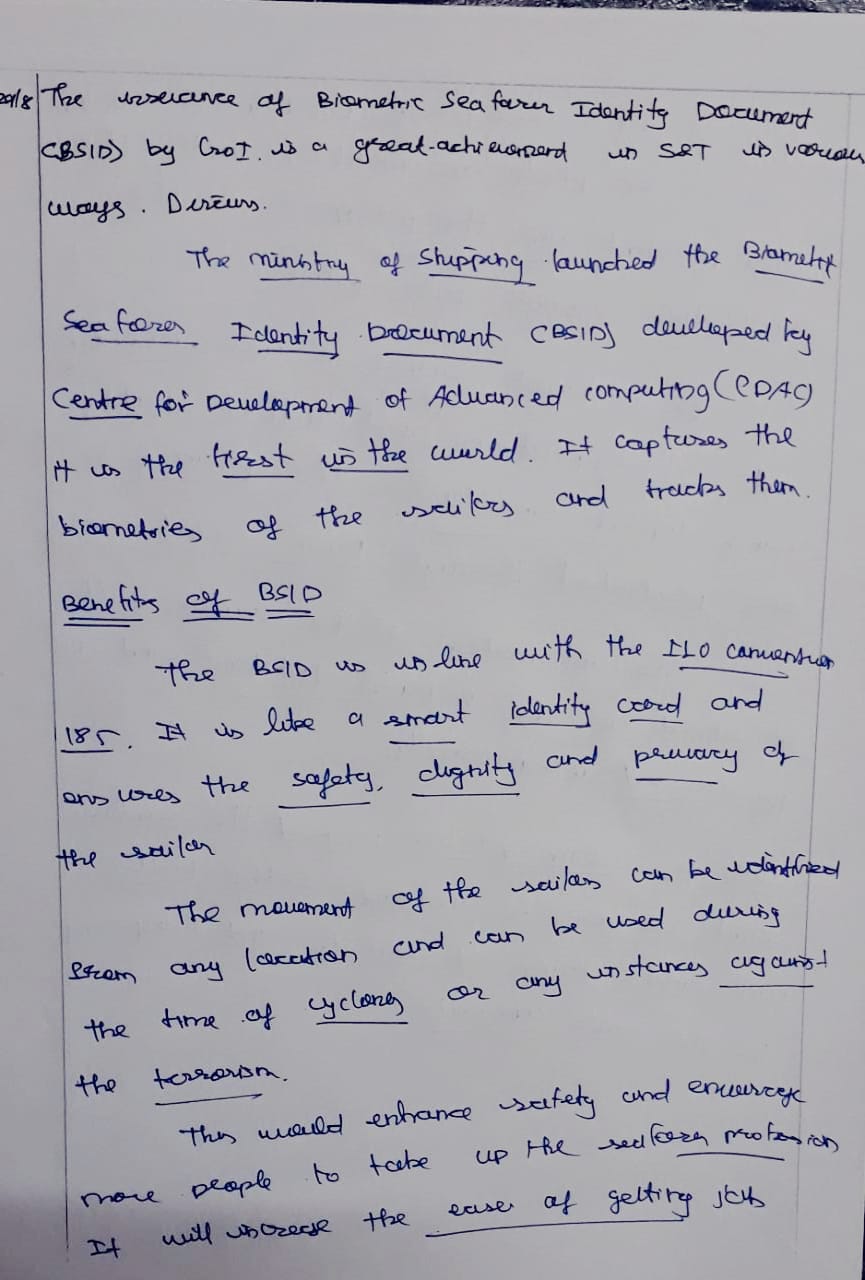 29/8 The issuance of Biometric Seafarer Identity Document
(BSID) by GoI. is a great achievement in S&T in various
ways. Discuss.
The ministry of Shipping launched the Biometric
Seafarer Identity Document (BSID) developed by
Centre for Development of Advanced computing (CDAC)
It is the first in the world. It captures the
biometrics of the sailors and tracks them.
Benefits of BSID
The BSID is in line with the ILO convention
185. It is like a smart identity card and
ensures the safety, dignity and privacy of
the sailor
The movement of the sailors can be identified
from any location and can be used during
the time of cyclones or any instances against
the terrorism.
This would enhance safety and encourage
more people to take up the seafarer profession
It will increase the ease of getting job